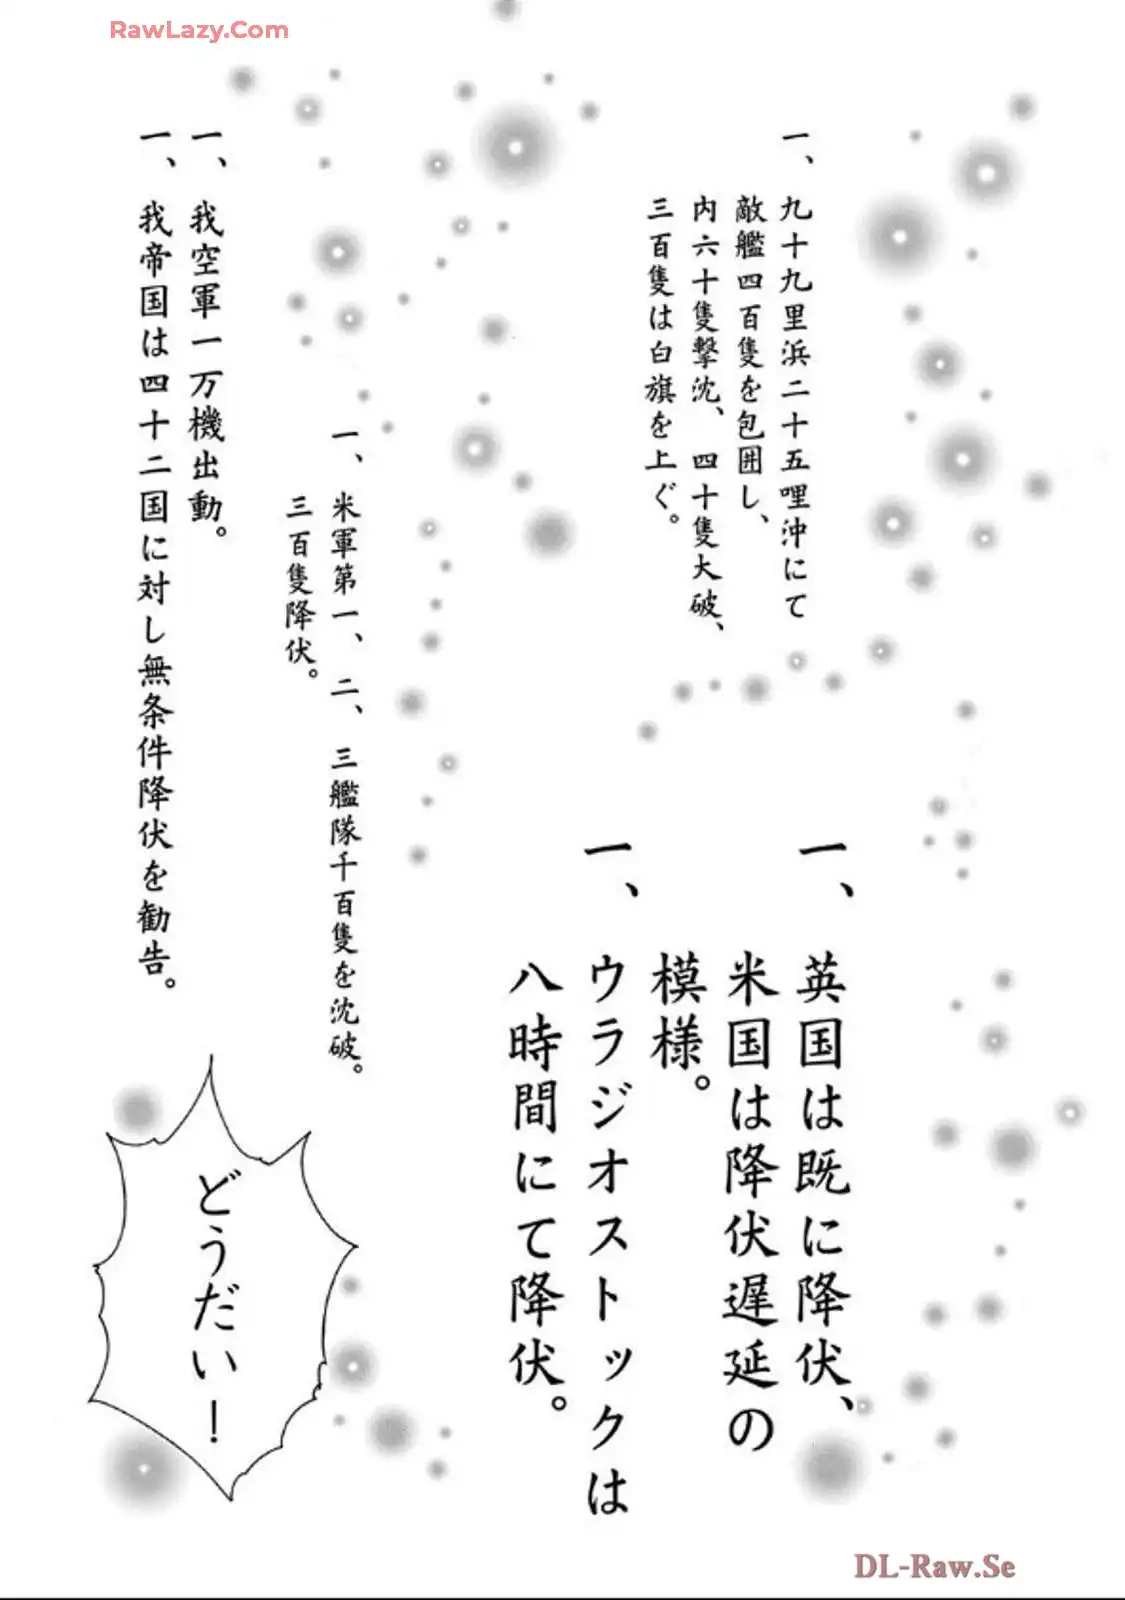 RawLazy.Com
一、九十九里浜二十五哩沖にて
敵艦四百隻を包囲し、
内六十隻撃沈、四十隻大破、
三百隻は白旗を上ぐ。
一、英国は既に降伏、
米国は降伏遅延の
模様。
一、ウラジオストックは
八時間にて降伏。
一、米軍第一、二、三艦隊千百隻を沈破。
三百隻降伏。
一、我空軍一万機出動。
一、我帝国は四十二国に対し無条件降伏を勧告。
どうだい！
DL-Raw.Se